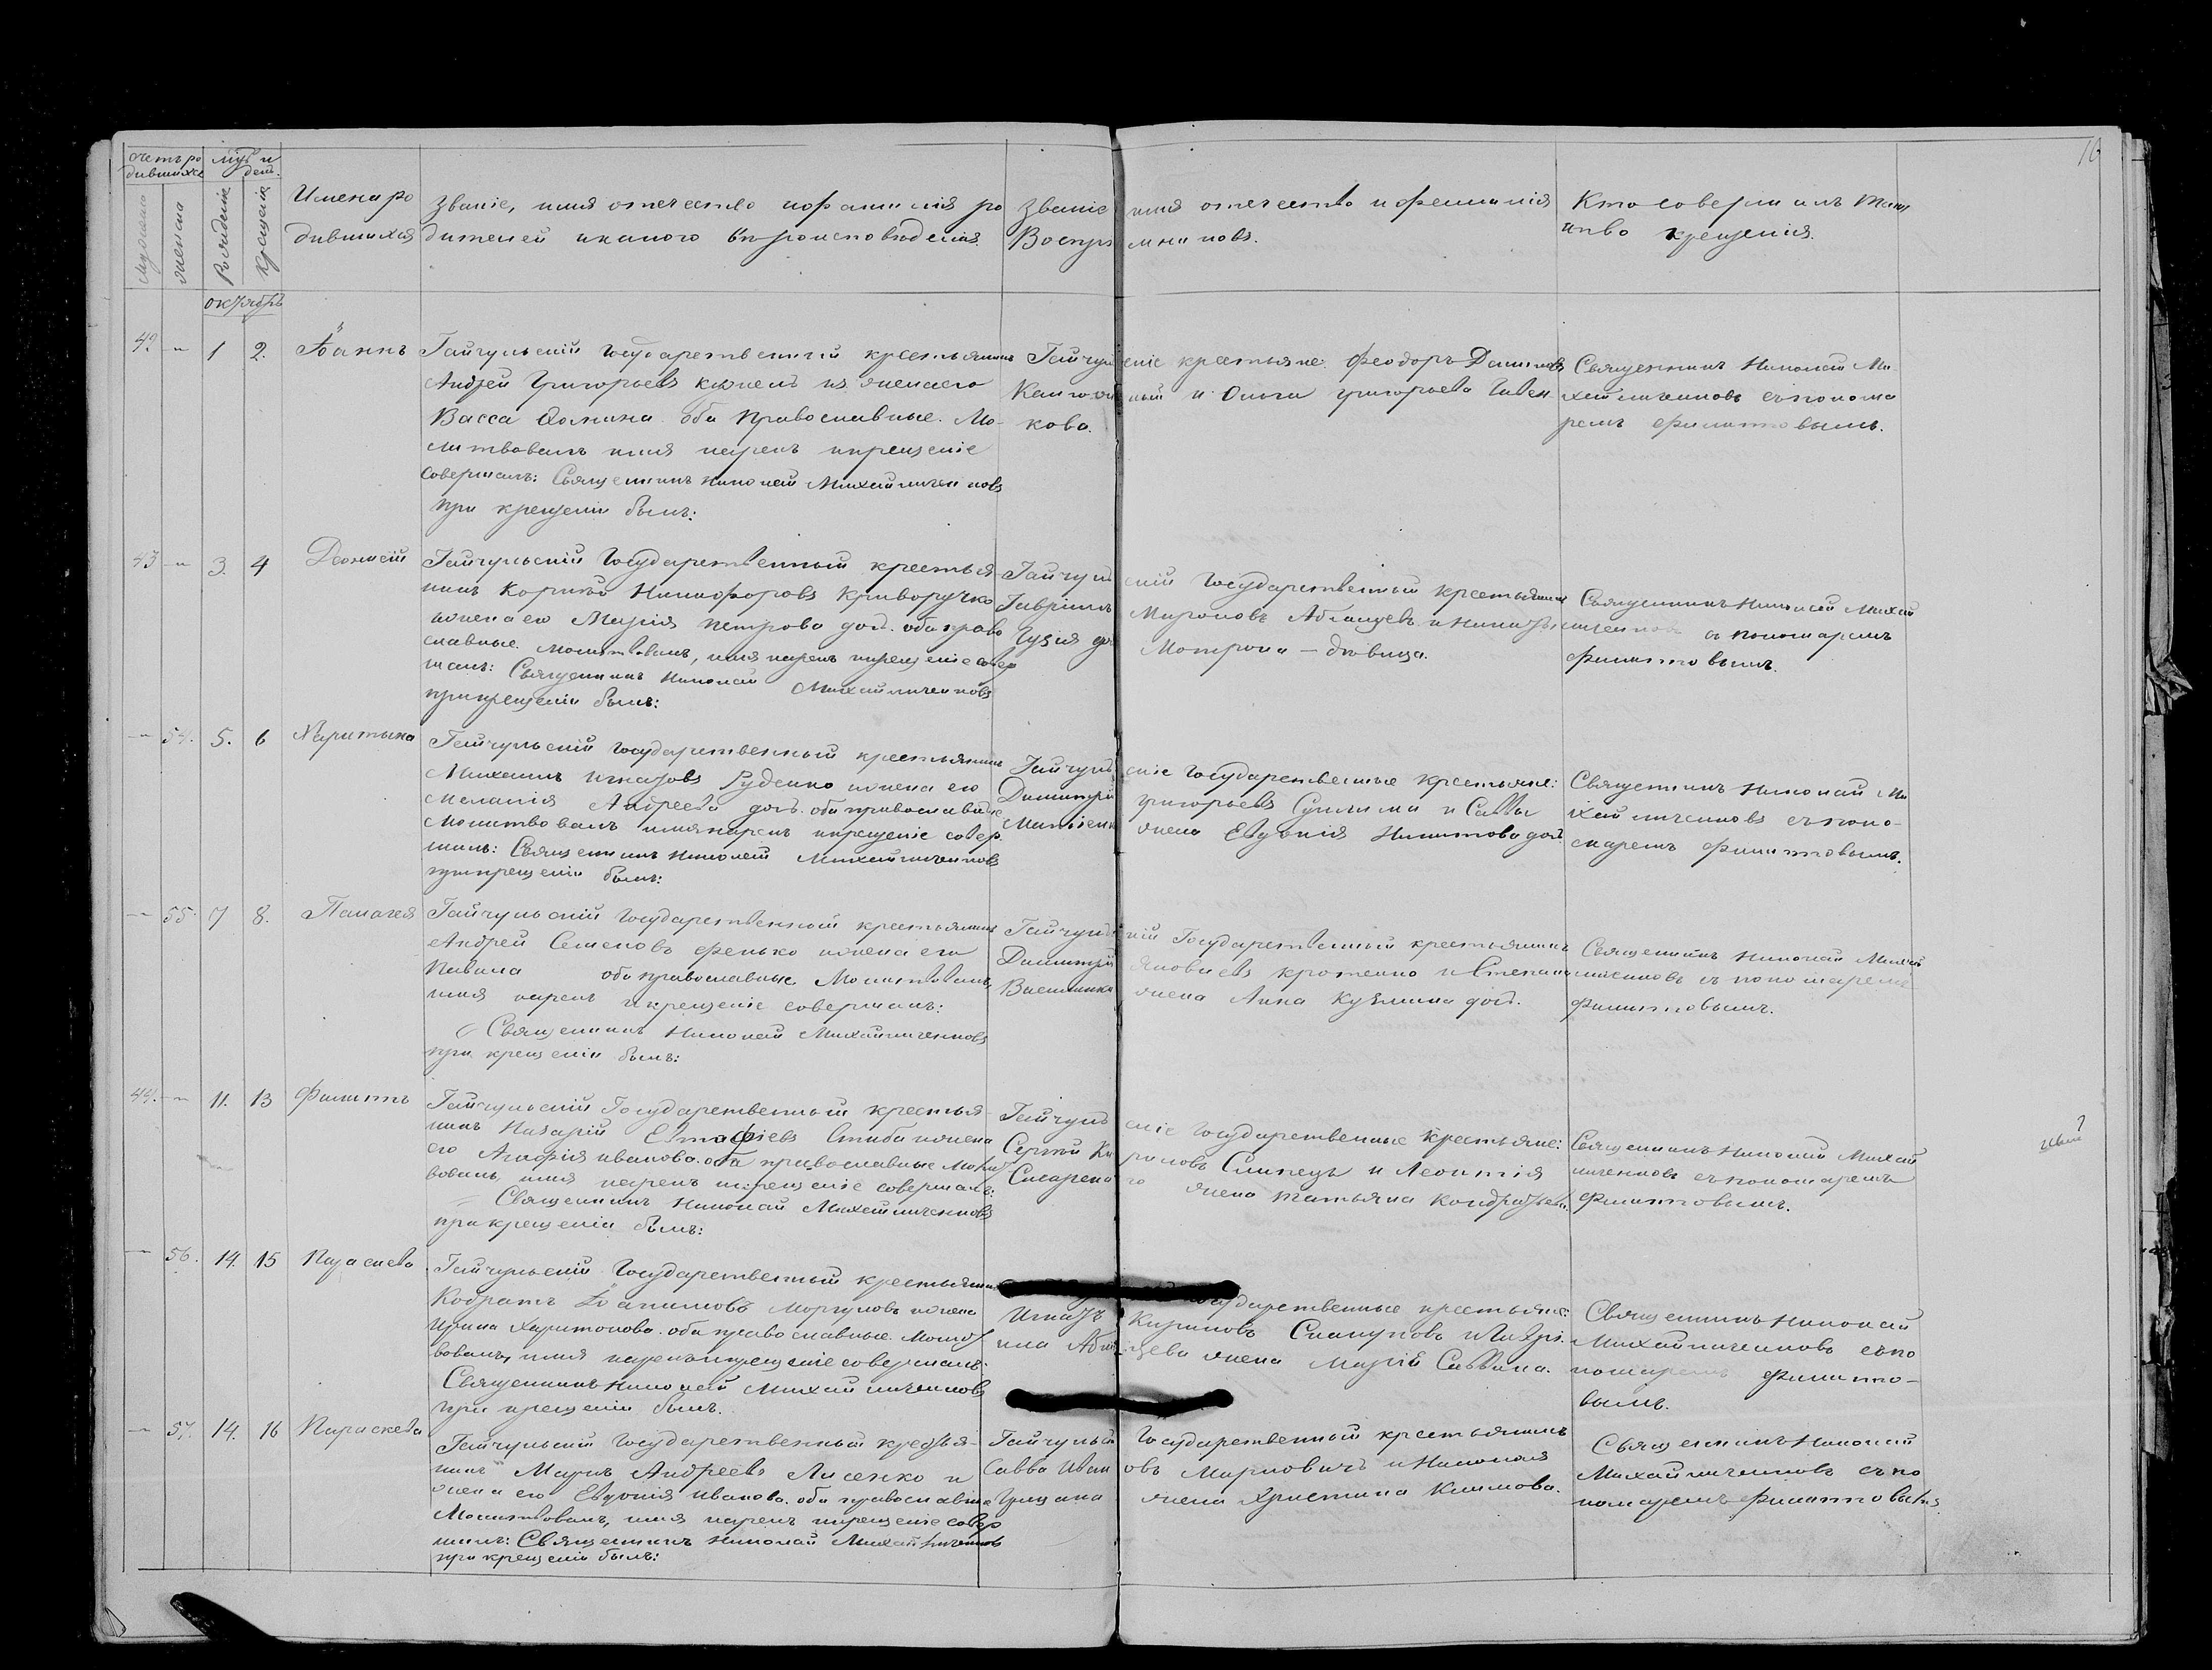 16
Счетъ ро
дившихся
мужеска
женска
Мцъ и
день.
Рожденія
Крещенія
Имена ро
дившихся
Званіе, имя отечество и фамилія ро
дителей и какого вѣроисповѣденія.
Званіе имя отечество и фамилія
Воспрі мниковъ.
Кто совершилъ таин
ство крещенія.
октябрь
42 — 1 2. Іоаннъ
Гайчульскій государственный крестьянинъ
Андрей Григорьевъ из жена его
Васса Фомина оба православные. Мо-
литвовалъ имя нарекъ и крещеніе
совершалъ: Священникъ Николай Михайличенковъ
при крещеніи былъ:
Гайчул скіе крестьяне: Феодоръ
и Ольга Григорьева
кова.
Священникъ Николай Ми-
хайличенковъ съ понома
ремъ Филиттовымъ.
43 — 3. 4 Деонисій
Гайчульскій Государственный крестья-
нинъ Никифоровъ Криворучко
и жена его Марія Петрова доч. оба право
славные. Молитвовалъ, имя нарекъ и крещеніе совер
шалъ: Священникъ Николай Михайличенковъ
при крещеніи былъ:
Гайчуль скій Государственный крестьянинъ
Гавріилъ Мироновъ
Матрона — дѣвица.
Священникъ Николай Михай
личенковъ с пономаремъ
Филиттовымъ.
— 54. 5. 6 Харитына
Гайчульскій Государственный крестьянинъ
Михаилъ Игнатовъ Руденко и жена его
Меланія Андреева доч. оба православные
Молитвовалъ имя нарекъ и крещеніе совер
шилъ: Священникъ Николай Михайличенковъ
при крещеніи былъ:
Гайчуль скіе Государственные крестьяне:
Димитрій Григорьевъ Сулима и Саввы
жена Евдокія Никитова доч.
Священникъ Николай Ми
хайличенковъ съ поно-
маремъ Филиттовымъ.
— 55. 7 8. Палагея
Гайчульскій Государственный крестьянинъ
Андрей Семеновъ Фенько и жена его
оба православные Молитвовалъ,
имя нарекъ и крещеніе совершалъ:
Священникъ Николай Михайличенковъ
при крещеніи былъ:
Гайчульс кій Государственный крестьянинъ
Димитрій Яковлевъ и Степана
жена Анна Кузмина доч.
Священникъ Николай Михай
личенковъ съ пономаремъ
Филиттовымъ.
44. — 11. 13 Филиппъ
Гайчульскій Государственный крестья-
нинъ Назарій Евтафіевъ и жена
его Агафія Иванова. оба православные Молит
вовалъ, имя нарекъ и крещеніе совершалъ:
Священникъ Николай Михайличенковъ
при крещеніи былъ:
Гайчуль скіе Государственные крестьяне:
Сергій Ки риловъ Слипець и Леонтія
жена Татьяна Кондратьева.
Священникъ Николай Михай
личенковъ съ пономаремъ
Филиттовымъ.
— 56. 14. 15 Параскева
Гайчульскій Государственный крестьянинъ
Кодратъ Іоакимовъ Моргуновъ и жена
Ирина Харитонова. оба православные. Молит
вовалъ, имя нарекъ и крещеніе совершалъ:
Священникъ Николай Михайличенковъ
при крещеніи былъ.
Государственные крестьяне:
Игнатъ Кириловъ и Гаврі
ила жена Марія Саввина.
Священникъ Николай
Михайличенковъ съ по
номаремъ Филитто-
вымъ.
— 57. 14. 16 Параскева
Гайчульскій Государственный крестья-
нинъ Маркъ Андреевъ Лисенко и
жена его Евдокія Иванова. оба православные
Молитвовалъ, имя нарекъ и крещеніе совер
шилъ: Священникъ Николай Михайличенковъ
при крещеніи былъ:
Гайчульскій Государственный крестьянинъ
Савва Иван овъ и Николая
Грицана жена Христина Климова.
Священникъ Николай
Михайличенковъ съ по
номаремъ Филиттовымъ.